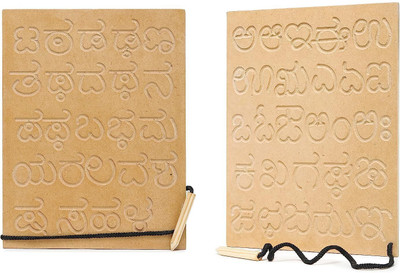 ಟ ಠ ಡ ಢ ಣ
ತ ಥ ದ ಧ ನ
ಪ ಫ ಬ ಭ ಮ
ಯ ರ ಲ ವ ಶ
ಷ ಸ ಹ ಳ
ಅ ಆ ಇ ಈ ಉ
ಊ ಋ ಎ ಏ ಐ
ಒ ಓ ಔ ಅಂ ಅಃ
ಕ ಖ ಗ ಘ ಙ
ಚ ಛ ಜ ಝ ಞ